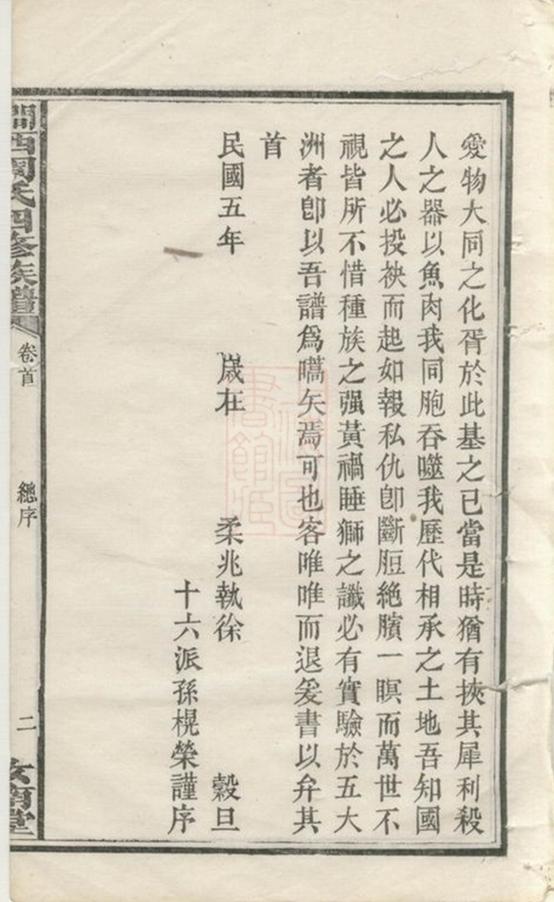 愛物大同之化胥於此基之已當是時猶有挾其犀利殺
人之器以魚肉我同胞吞噬我歷代相承之土地吾知國
之人必投袂而起如報私仇卽斷脰絶臏一瞑而萬世不
視皆所不惜種族之强黃禍睡獅之讖必有實驗於五大
洲者卽以吾譜爲嚆矢焉可也客唯唯而退爰書以弁其
首
民國五年 歲在 柔兆執徐 穀旦
十六派孫榥榮謹序
周氏四修族譜
卷首
總序
二
汝南堂